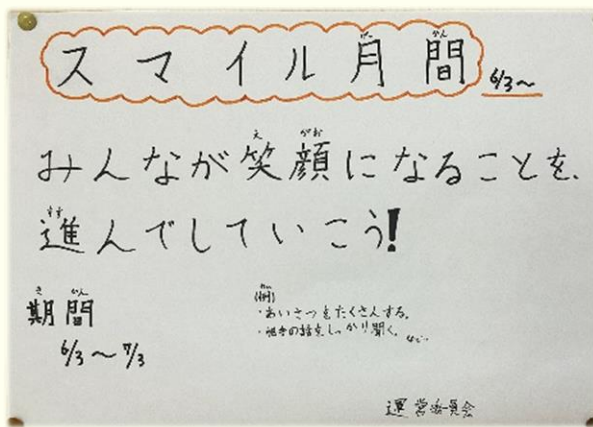 スマイル月間 6/3~
みんなが笑顔になることを、
進んでしていこう!
期間
6/3~7/3
(例)
・あいさつをたくさんする。
・相手の話をしっかり聞く。など…
運営委員会